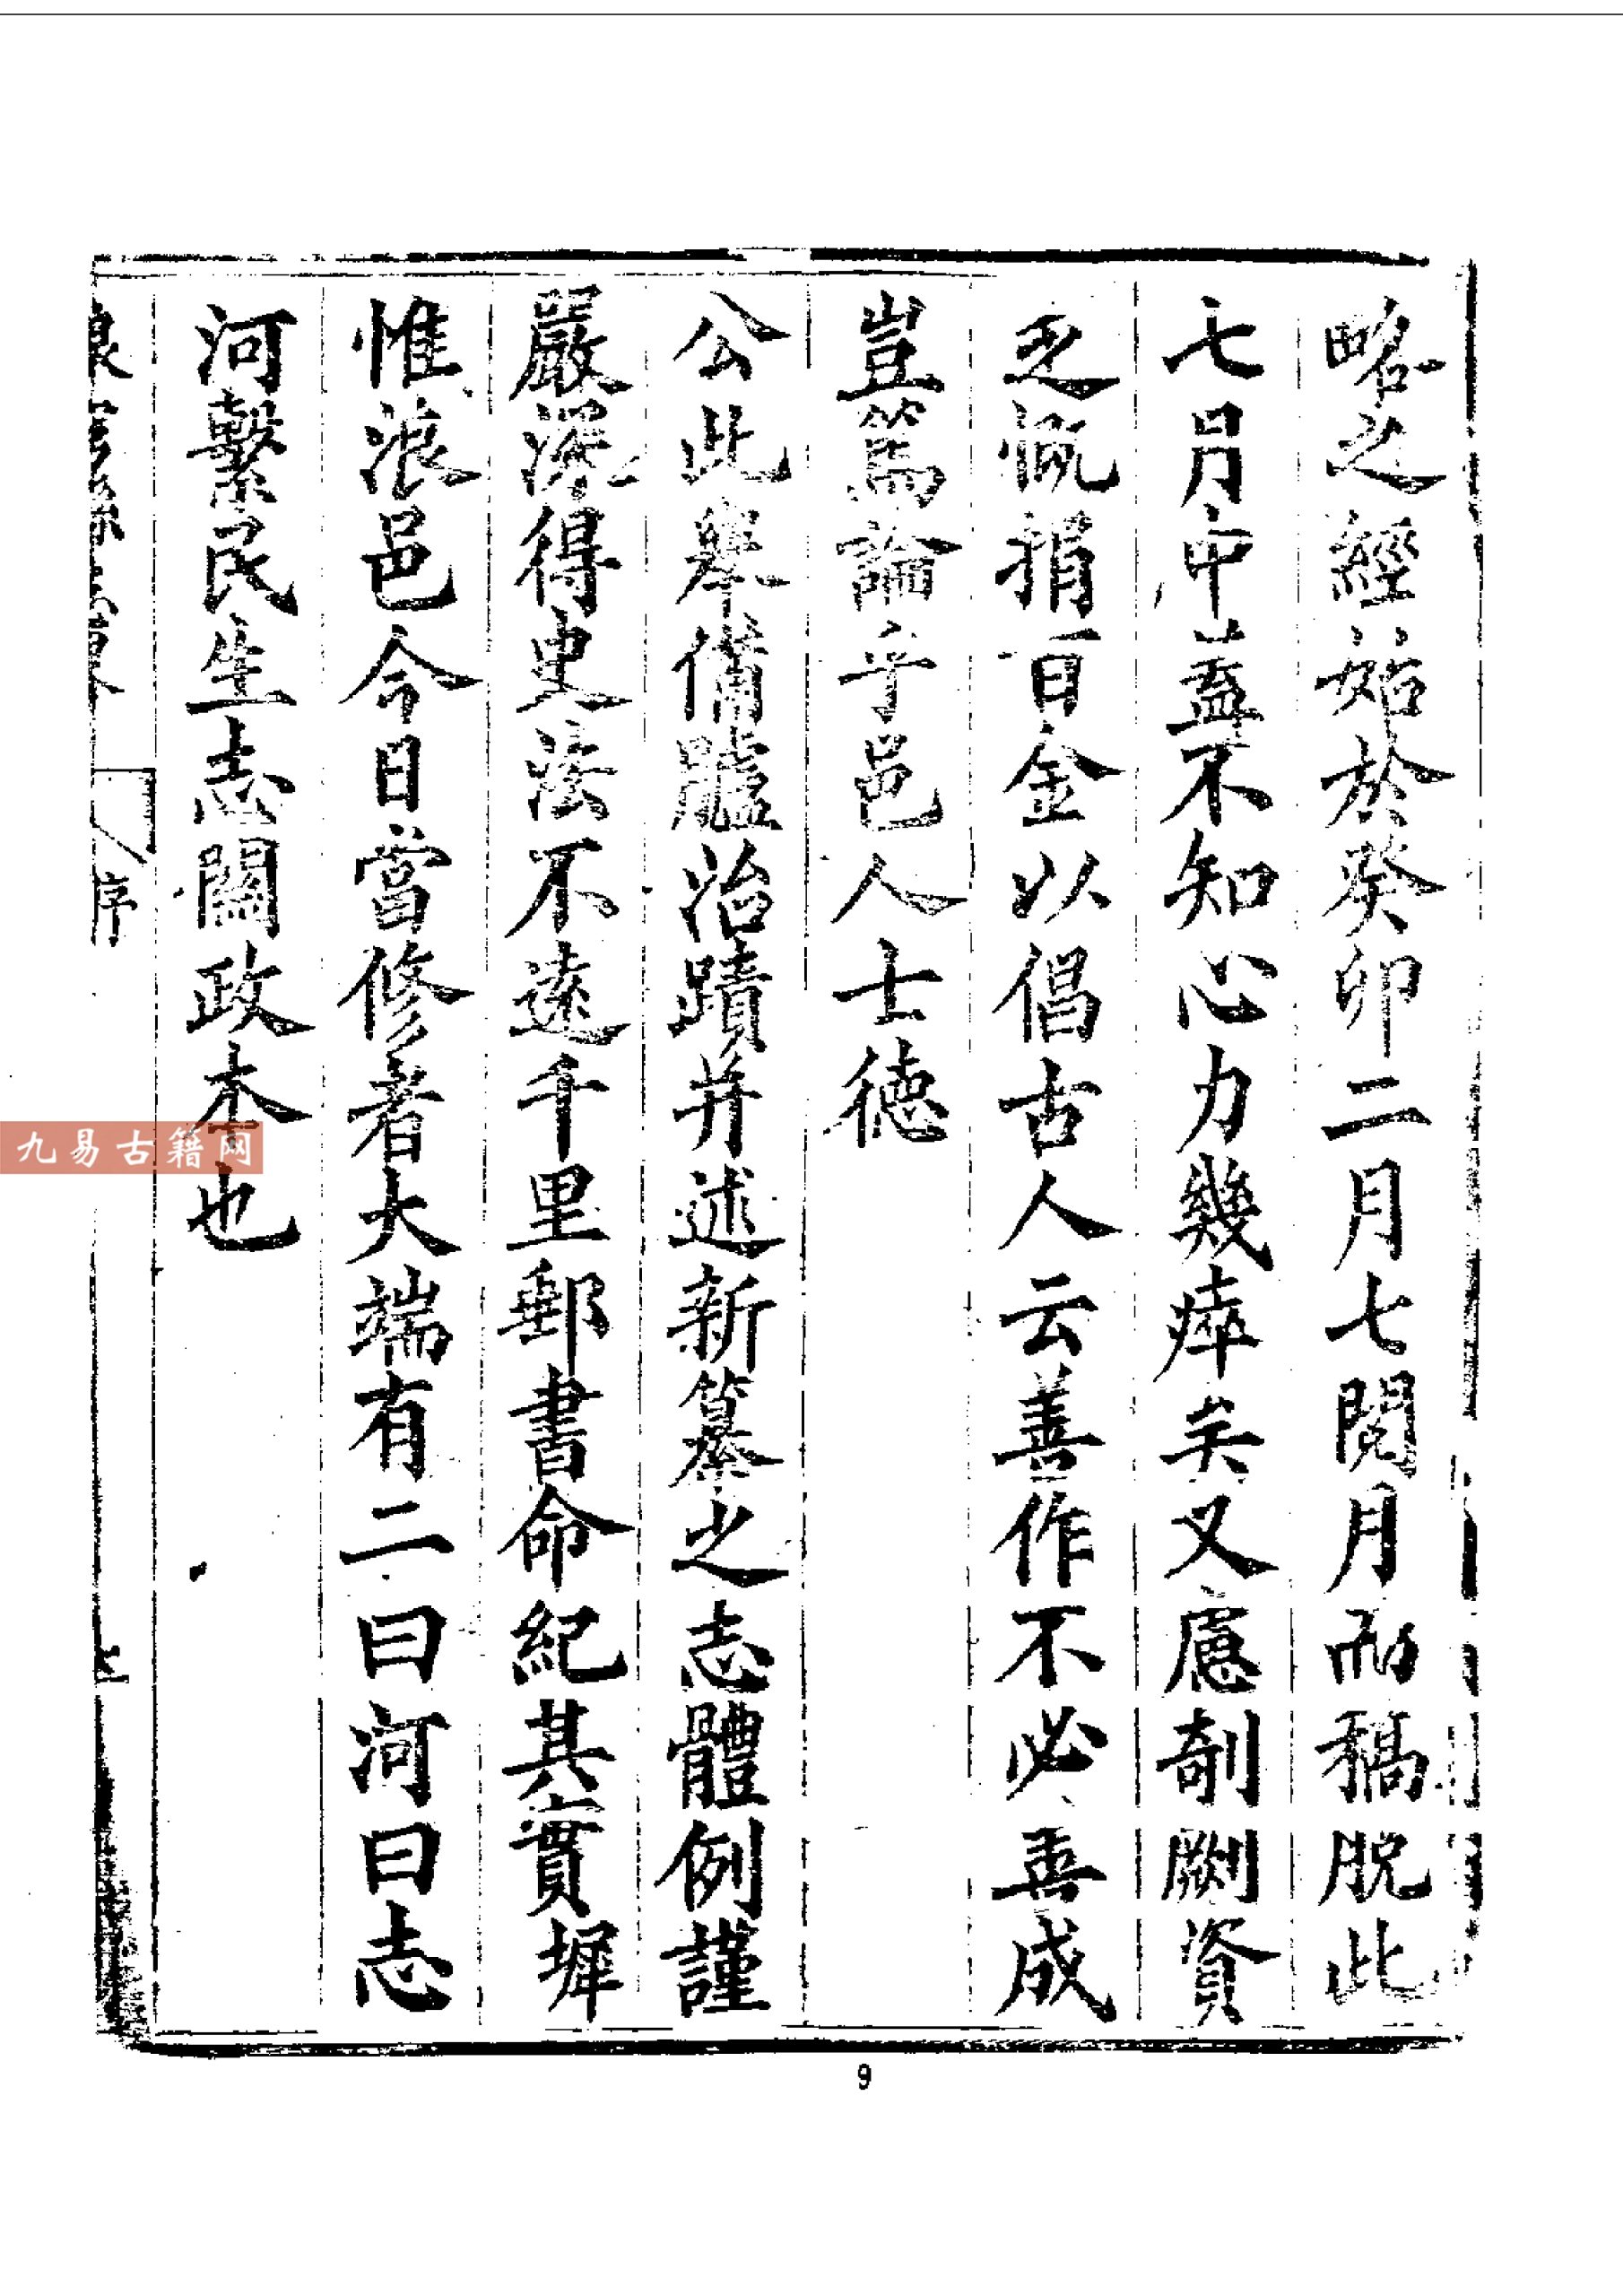 略之經始於癸卯二月七閱月而稿脫此
七月中葢不知心力幾瘁矣又慮剞劂資
乏慨捐百金以倡古人云善作不必善成
豈篤論乎邑人士德
公此舉備臚治蹟并述新纂之志體例謹
嚴深得史法不遠千里郵書命紀其實墀
惟浪邑今日當修者大端有二曰河曰志
河繫民生志關政本也
序
九易古籍网
9